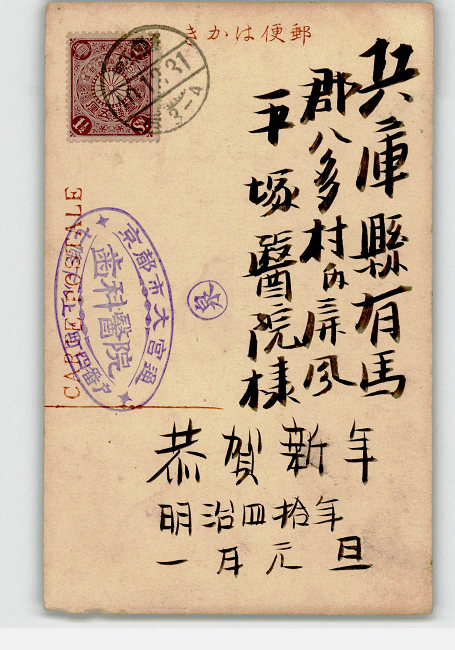 郵便はかき
CARTE POSTALE
兵庫縣有馬
郡八多村内屏風
平塚醫院様
恭賀新年
明治四拾年
一月元旦
京都市大宮通
歯科醫院